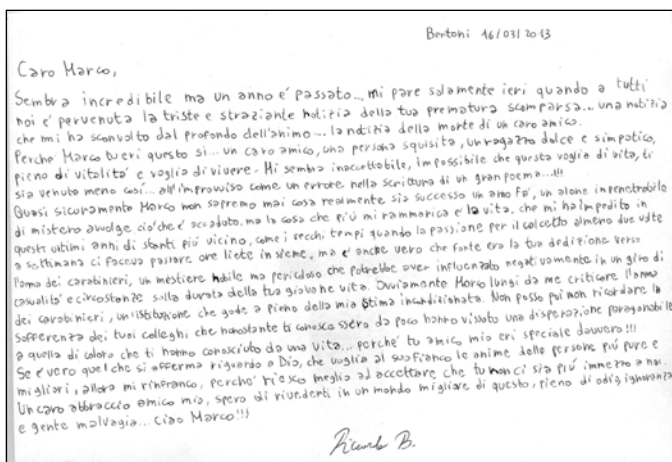 Bertoni 16/03/2013
Caro Marco,
Sembra incredibile ma un anno e' passato... mi pare solamente ieri quando a tutti
noi e' pervenuta la triste e straziante notizia della tua prematura scomparsa... una notizia
che mi ha sconvolto dal profondo dell'animo... la notizia della morte di un caro amico.
Perché Marco tu eri questo si... un caro amico, una persona squisita, un ragazzo dolce e simpatico,
pieno di vitalita' e voglia di vivere. Mi sembra inaccettabile, impossibile che questa voglia di vita, ti
sia venuta meno cosi... all'improvviso come un errore nella scrittura di un gran poema...!!!
Quasi sicuramente Marco non sapremo mai cosa realmente sia successo un anno fa', un alone impenetrabile
di mistero avvolge cio' che e' accaduto, ma la cosa che più mi rammarica e' la vita, che mi ha impedito in
questi ultimi anni di starti più vicino, come i vecchi tempi quando la passione per il calcetto almeno due volte
a settimana ci faceva passare ore liete insieme, ma e' anche vero che forte era la tua dedizione verso
l'arma dei carabinieri, un mestiere nobile ma pericoloso che potrebbe aver influenzato negativamente in un giro di
casualita' e circostanze sulla durata della tua giovane vita. Ovviamente Marco lungi da me criticare l'arma
dei carabinieri, un'istituzione che gode a pieno della mia stima incondizionata. Non posso poi non ricordare la
sofferenza dei tuoi colleghi che nonostante ti conoscessero da poco hanno vissuto una disperazione paragonabile
a quella di coloro che ti hanno conosciuto da una vita... perche' tu amico mio eri speciale davvero!!!
Se e' vero quel che si afferma riguardo a Dio, che voglia al suo fianco le anime delle persone più pure e
migliori, allora mi rinfranco, perche' riesco meglio ad accettare che tu non ci sia più in mezzo a noi.
Un caro abbraccio amico mio, spero di rivederti in un mondo migliore di questo, pieno di odio, ignoranza
e gente malvagia... Ciao Marco!!!
Riccardo B.